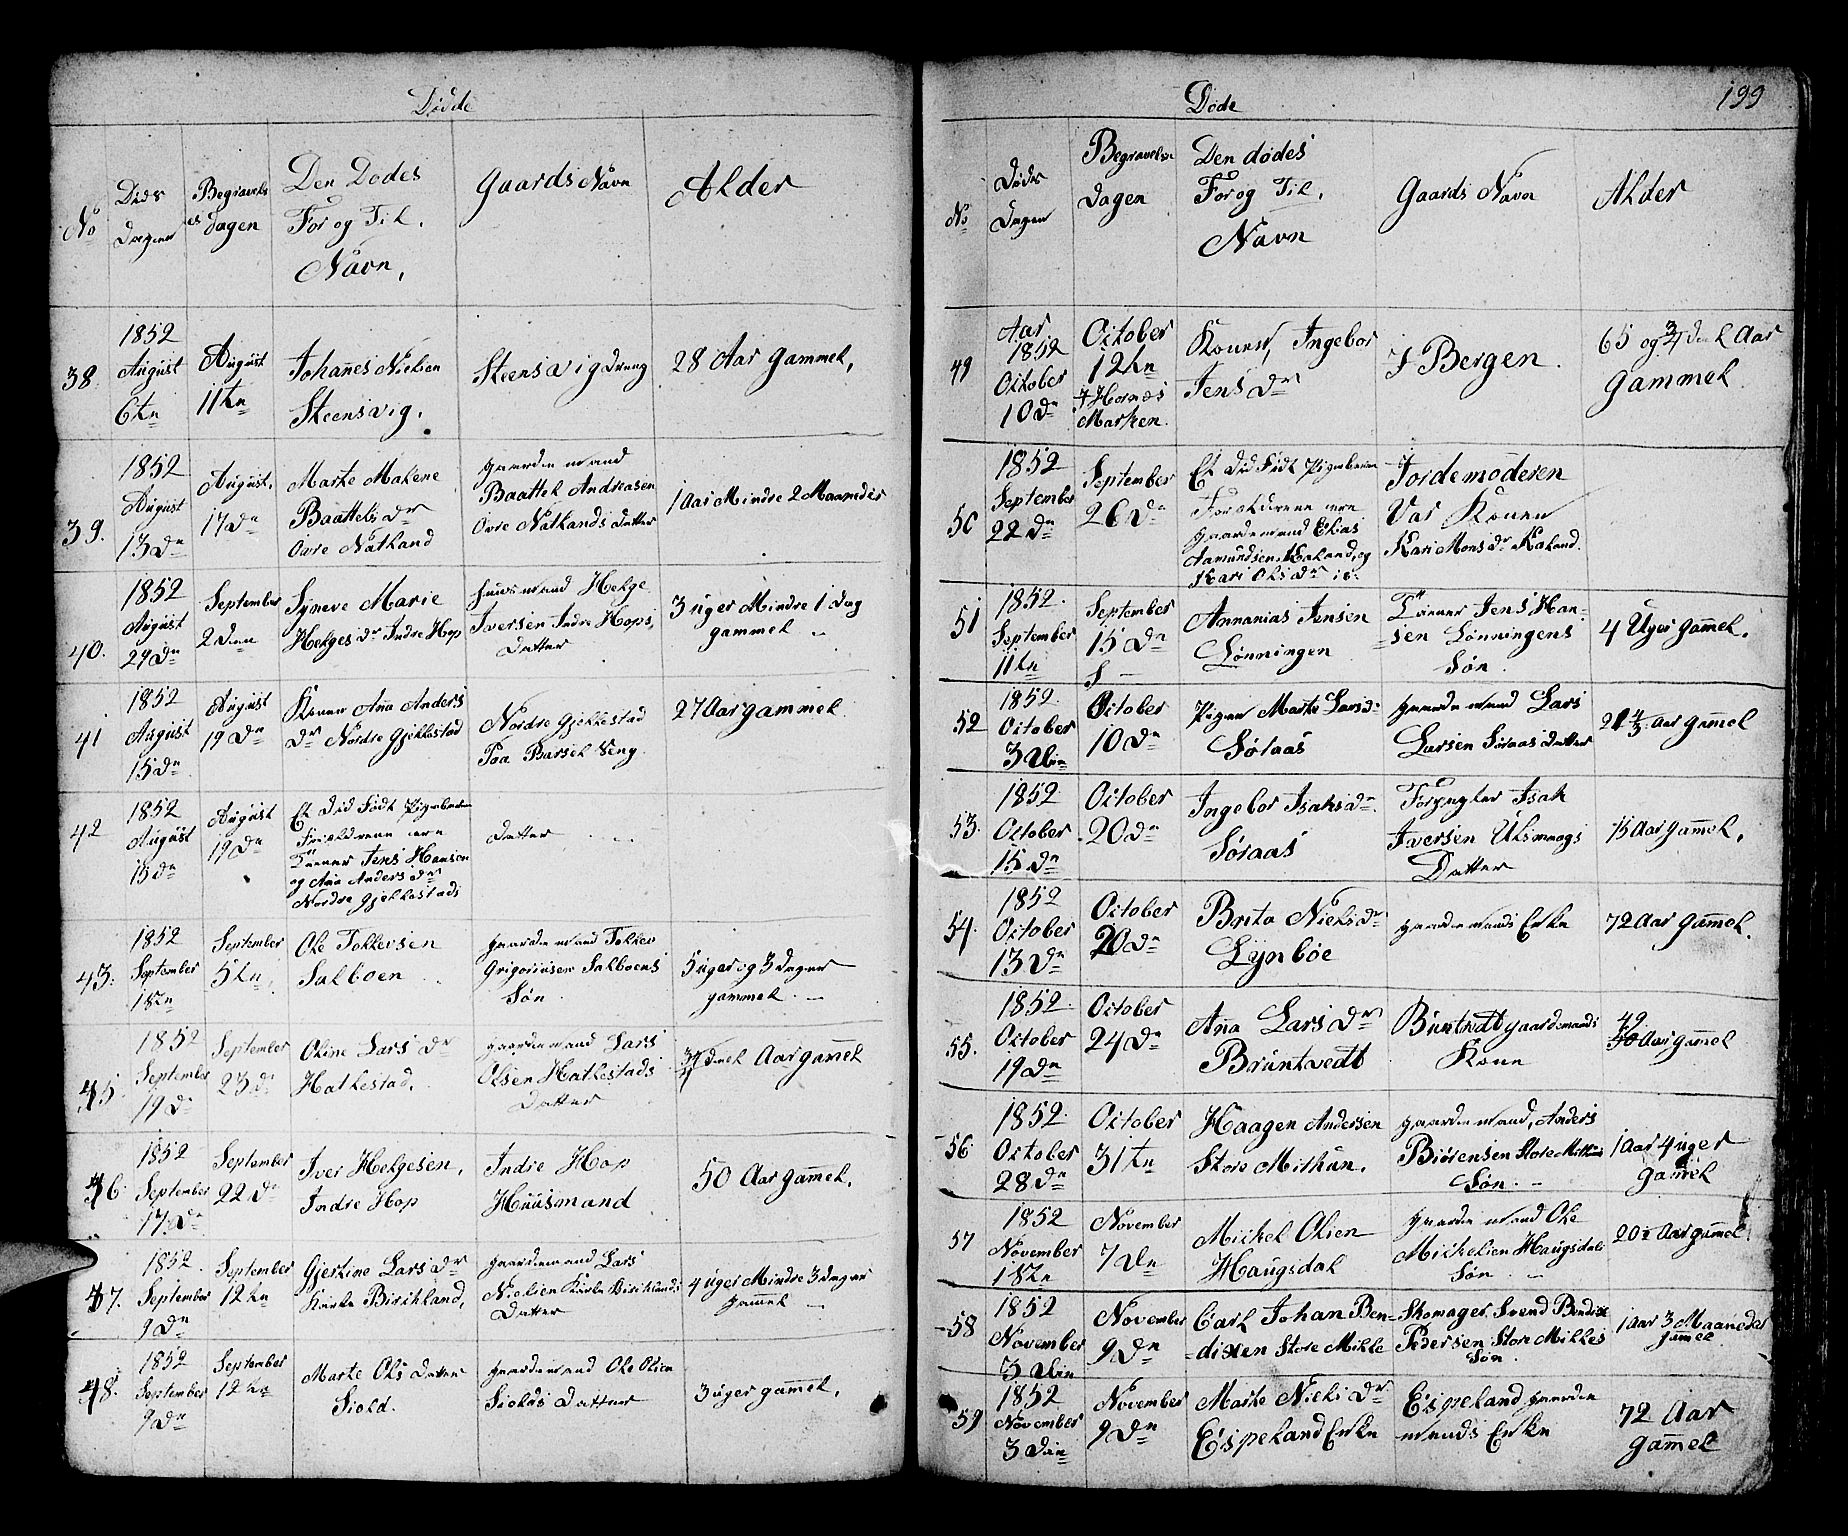 Døde
No
Døds
Dagen
Begravels
es
Dagen
Den Dødes
For og Til.
Navn,
Gaards Navn
Alder
38.
1852
August
6tn
August
11tn
Johanes Nielsen
Steensvig.
Steensvig Dreng
28 Aar gammel,
39.
1852
August
13dn
August,
17dn
Marte Malene
Baattels Dr
Øvre Natland
Gaardemand
Baattel Andreasen
Øvre Natlands Datter
1 Aar Mindre 2 Maaneder
40.
1852
August
29dn
September
2den
Syneve Marie
Helges Dr Indre Hop
Huusmand Helge
Iversen Indre Hops,
Datter
3 uger Mindre 1 Dag
gammel
41
1852
August
15dn
August
19dn
Konen Ana Anders
Dr Nordre Gjellestad
Nordre Gjellestad
Paa Barsel Seng.
27 Aar gammel.
42
1852
August
15dn
August
19dn
Et Død Født Pigebarn
Forældrene ere
Tienner Jens Hansen
og Ana Anders Dr
Nordre Gjellestads
Datter
43.
1852
September
1stn
September
5tn,
Ole Tollersen
Salboen
Gaardemand Toller
Grigoriusen Salboens
Søn.
5 uger og 3 Dager
gammel.
45.
1852
September
19d
September
23d
Oline Lars Dr
Hatlestad.
Gaardemand Lars
Olsen Hatlestads
Datter
3/4 deel Aar gamel
46
1852
September
17dn
September
22dn
Iver Helgesen,
Indre Hop
Indre Hop
Huusmand
50 Aar gamel.
47.
1852.
September
9dn
September
12tn
Gjertine Lars Dr
Kirke Birchland,
Gaardemand Lars
Nielsen Kirke Birchlands
Datter
4 uger Mindre 3 Dager
gamel
48.
1852
September
9dn
September
12tn
Marte Ols Datter
Siold.
Gaardemand Ole Olsen
Siolds Datter
3 uger gamel,
Døde
199
No
Døds
Dagen
Begravelse
Dagen
Den dødes
For og Til.
Navn
Gaards Navn
Alder
49
Aar
1852
October
10dn
October
12tn
Marken.
Konen, Ingebor
Jens Dr
I Bergen.
65 og 3/4 deel Aar
gammel.
50
1852
September
22dn
September
26dn
Et Død Født Pigebarn
Forældrene ere
Gaardemand Elias
Aamundsen Kaland, og
Kari Ols Dr
Jordemoderen
Var Konen
Kari Mons Dr Kaland.
51
1852.
September
11tn
September
15dn
S
Annanias Jensen
Lønningen
Tienner Jens Han-
sen Lønningens
Søn.
4 Uger gamel.
52
1852.
October
3die
October
10dn
Pigen Marte Lars Dr
Søraas
Gaardemand Lars
Larsen Søraas Datter
Aar gamel
53.
1852
October
15dn
October
20dn
Ingebor Isaks Dr
Søraas
Forpagter Isak
Iversen Ulsmaags
Datter
15 Aar gamel.
54.
1852
October
13dn
October
20dn
Brita Niels Dr
Lynbøe
Gaardemands Enke
72 Aar gamel.
55.
1852.
October
19dn
October
24dn
Ana Lars Dr
Bruntvedt
Bruntvedt gaardemands
Kone
49
50 Aar gamel
56
1852.
October
28dn
October
31tn
Haagen Andersen
Store Milhun.
Gaardemand, Anders
Biørensen Store Milhuns
Søn.
1 Aar 4 uger
gamel
57
1852
November
1stn
November
7dn
Mickel Olsen
Haugsdal
Gaardemand Ole
Mickelsen Haugsdals
Søn.
20 1/2 Aar gamel
58
1852
November
3die
November
9dn
Carl Johan Ben-
-dixen Store Milde
Skomager Svend Bendix
Pedersen Store Mildes
Søn.
1 Aar 3 Maaneder
gamel
59
1852
November
3die
November
9dn
Marte Niels Dr
Espeland Enke
Espeland, Gaarde
mands Enke
72 Aar
gamel